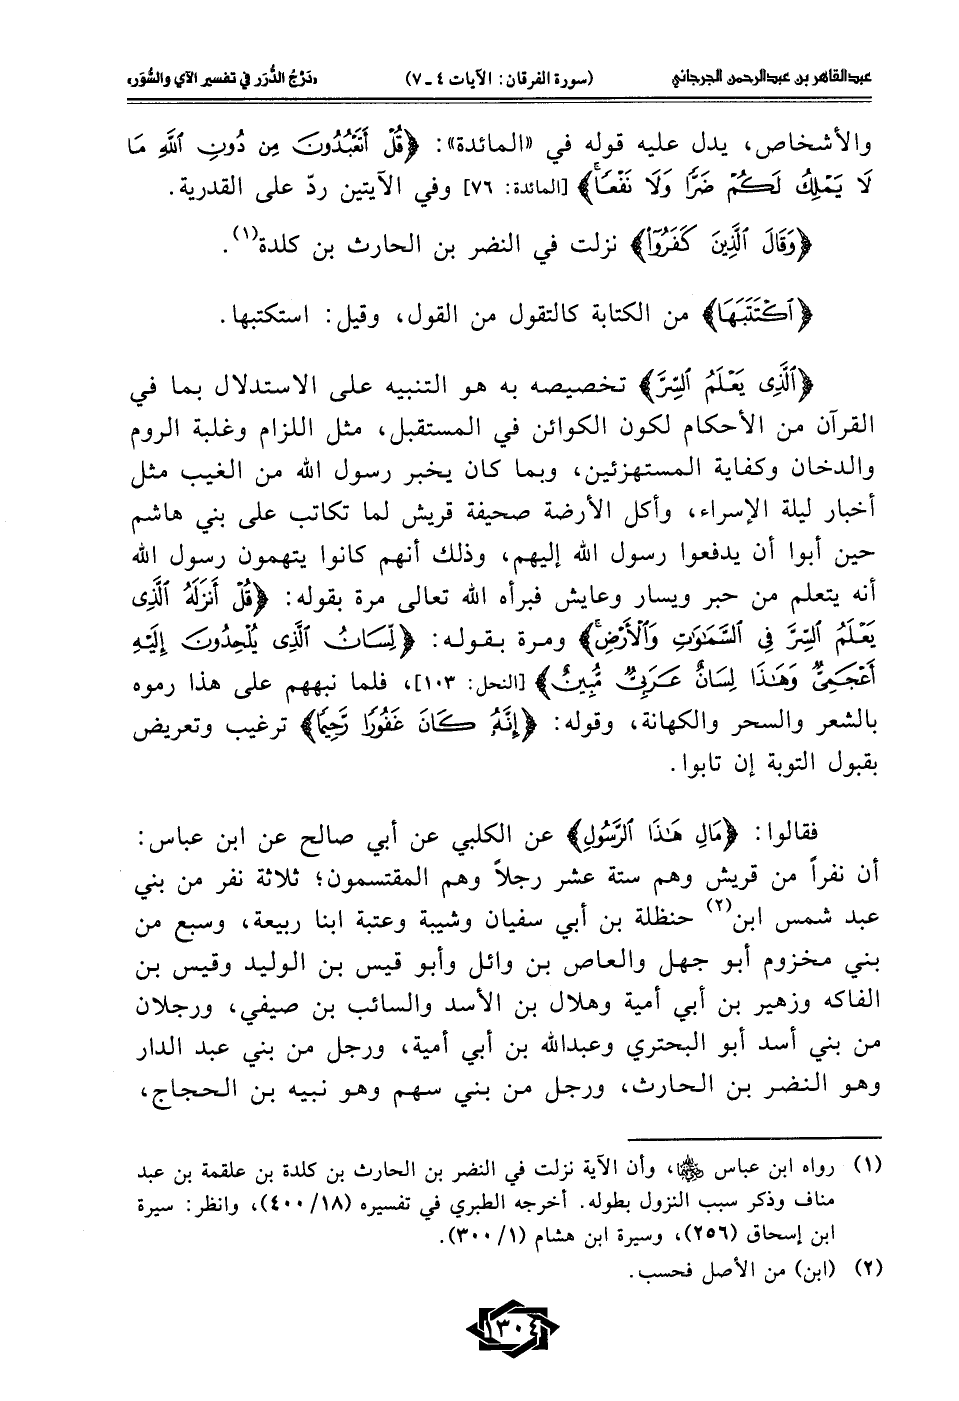 عبدالقاهر بن عبدالرحمن الجرجاني (سورة الفرقان: الآيات ٤ ـ ٧) «دَرْجُ الدُّرَر في تفسير الآي والسُّوَر»
والأشخاص، يدل عليه قوله في «المائدة»: ﴿قُلْ أَتَعْبُدُونَ مِن دُونِ ٱللَّهِ مَا
لَا يَمْلِكُ لَكُمْ ضَرًّا وَلَا نَفْعًا﴾ [المائدة: ٧٦] وفي الآيتين ردّ على القدرية.
﴿وَقَالَ ٱلَّذِينَ كَفَرُوٓا۟﴾ نزلت في النضر بن الحارث بن كلدة(١).
﴿ٱكْتَتَبَهَا﴾ من الكتابة كالتقول من القول، وقيل: استكتبها.
﴿ٱلَّذِى يَعْلَمُ ٱلسِّرَّ﴾ تخصيصه به هو التنبيه على الاستدلال بما في
القرآن من الأحكام لكون الكوائن في المستقبل، مثل اللزام وغلبة الروم
والدخان وكفاية المستهزئين، وبما كان يخبر رسول الله من الغيب مثل
أخبار ليلة الإسراء، وأكل الأرضة صحيفة قريش لما تكاتب على بني هاشم
حين أبوا أن يدفعوا رسول الله إليهم، وذلك أنهم كانوا يتهمون رسول الله
أنه يتعلم من حبر ويسار وعايش فبرأه الله تعالى مرة بقوله: ﴿قُلْ أَنزَلَهُ ٱلَّذِى
يَعْلَمُ ٱلسِّرَّ فِى ٱلسَّمَٰوَٰتِ وَٱلْأَرْضِ﴾ ومرة بقوله: ﴿لِّسَانُ ٱلَّذِى يُلْحِدُونَ إِلَيْهِ
أَعْجَمِىٌّ وَهَٰذَا لِسَانٌ عَرَبِىٌّ مُّبِينٌ﴾ [النحل: ١٠٣]، فلما نبههم على هذا رموه
بالشعر والسحر والكهانة، وقوله: ﴿إِنَّهُۥ كَانَ غَفُورًا رَّحِيمًا﴾ ترغيب وتعريض
بقبول التوبة إن تابوا.
فقالوا: ﴿مَالِ هَٰذَا ٱلرَّسُولِ﴾ عن الكلبي عن أبي صالح عن ابن عباس:
أن نفراً من قريش وهم ستة عشر رجلاً وهم المقتسمون؛ ثلاثة نفر من بني
عبد شمس ابن(٢) حنظلة بن أبي سفيان وشيبة وعتبة ابنا ربيعة، وسبع من
بني مخزوم أبو جهل والعاص بن وائل وأبو قيس بن الوليد وقيس بن
الفاكه وزهير بن أبي أمية وهلال بن الأسد والسائب بن صيفي، ورجلان
من بني أسد أبو البحتري وعبدالله بن أبي أمية، ورجل من بني عبد الدار
وهو النضر بن الحارث، ورجل من بني سهم وهو نبيه بن الحجاج،
(١) رواه ابن عباس ﵄، وأن الآية نزلت في النضر بن الحارث بن كلدة بن علقمة بن عبد
مناف وذكر سبب النزول بطوله. أخرجه الطبري في تفسيره (١٨/ ٤٠٠)، وانظر: سيرة
ابن إسحاق (٢٥٦)، وسيرة ابن هشام (١/ ٣٠٠).
(٢) (ابن) من الأصل فحسب.
١٣٠٤